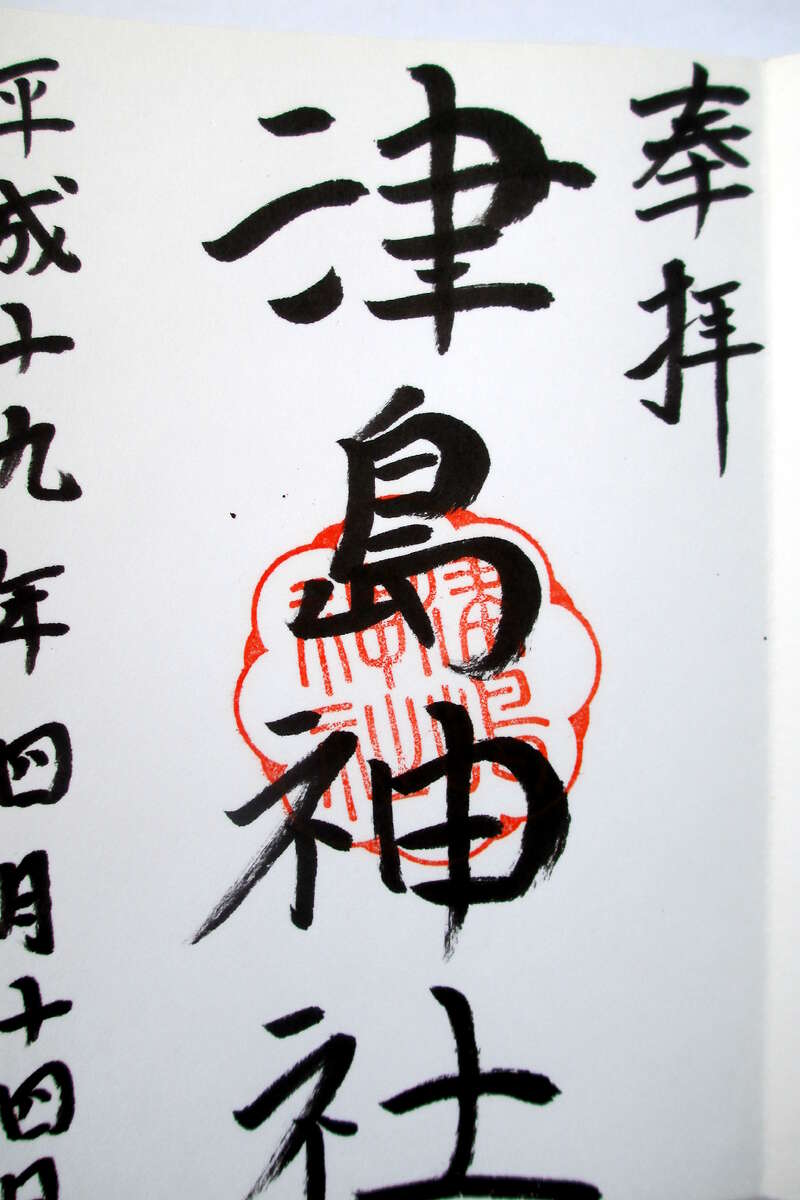 奉拝
津島神社
津嶋神社
平成十九年四月十四日